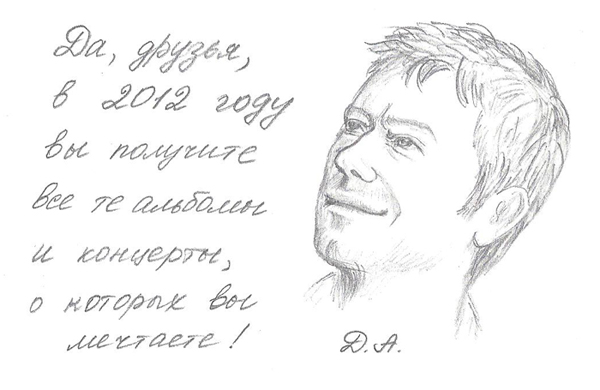 Да, друзья,
в 2012 году
вы получите
все те альбомы
и концерты,
о которых вы
мечтаете!
Д.А.